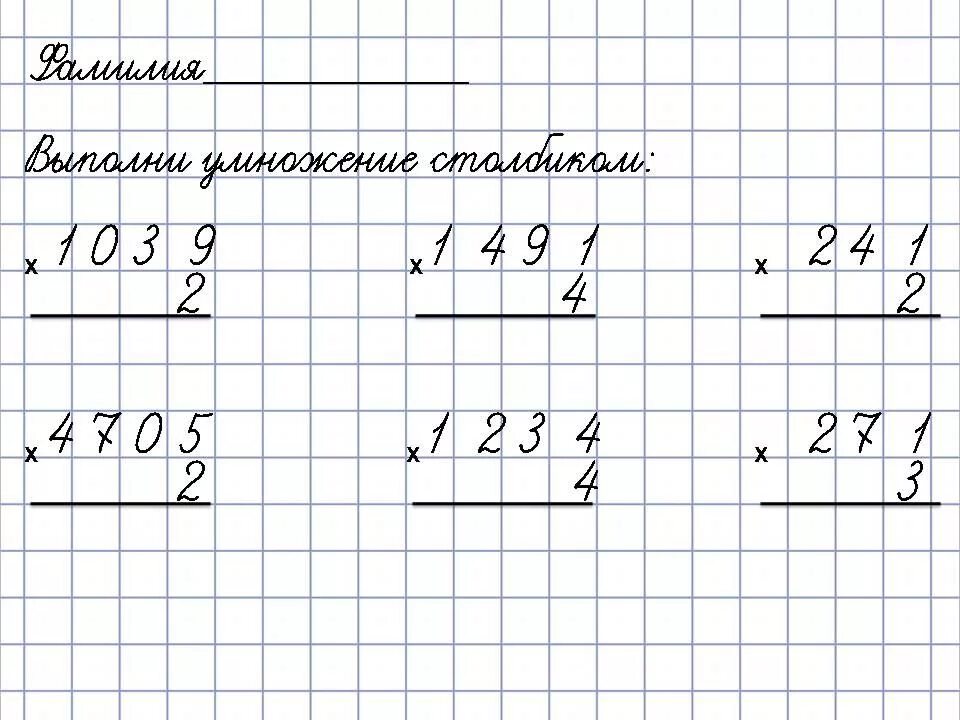 Фамилия______________
Выполни умножение столбиком:
х 1 0 3 9 х 1 4 9 1 х 2 4 1
2 4 2
х 4 7 0 5 х 1 2 3 4 х 2 7 1
2 4 3